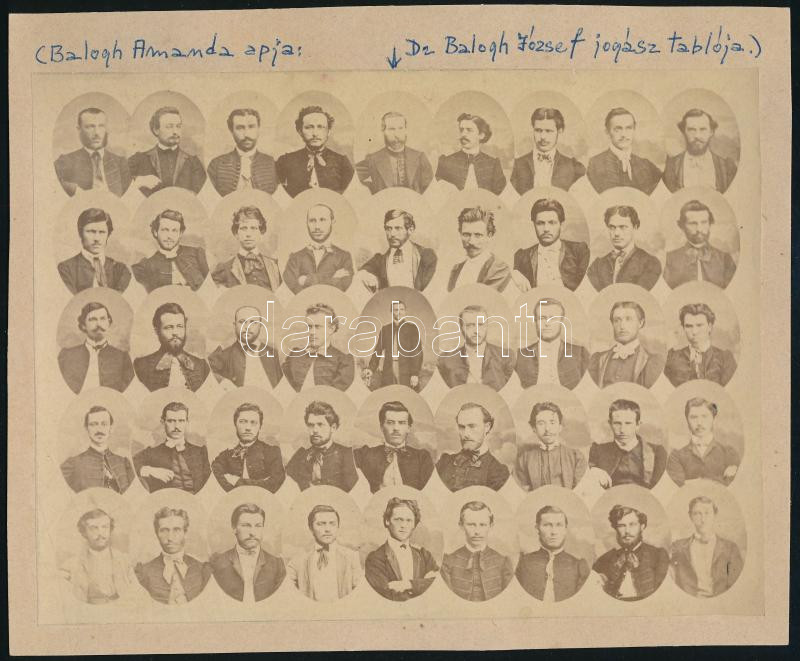 (Balogh Amanda apja: ↓ Dr Balogh József jogász tablója.)
darabanth